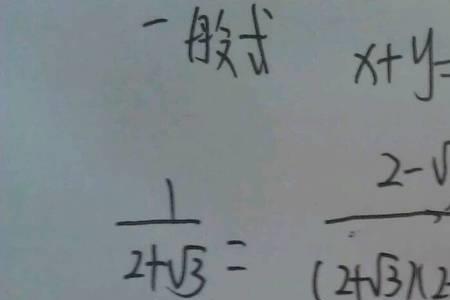 一般式
x+y=
1/(2+√3) = (2-√)/((2+√3)(2-